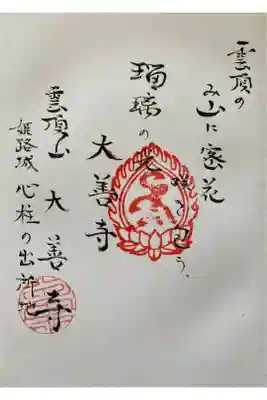 雲頂の
み山に密花
咲き包う、
瑠璃の光
大善寺
雲頂山 大善寺
姫路城 心柱の出所地